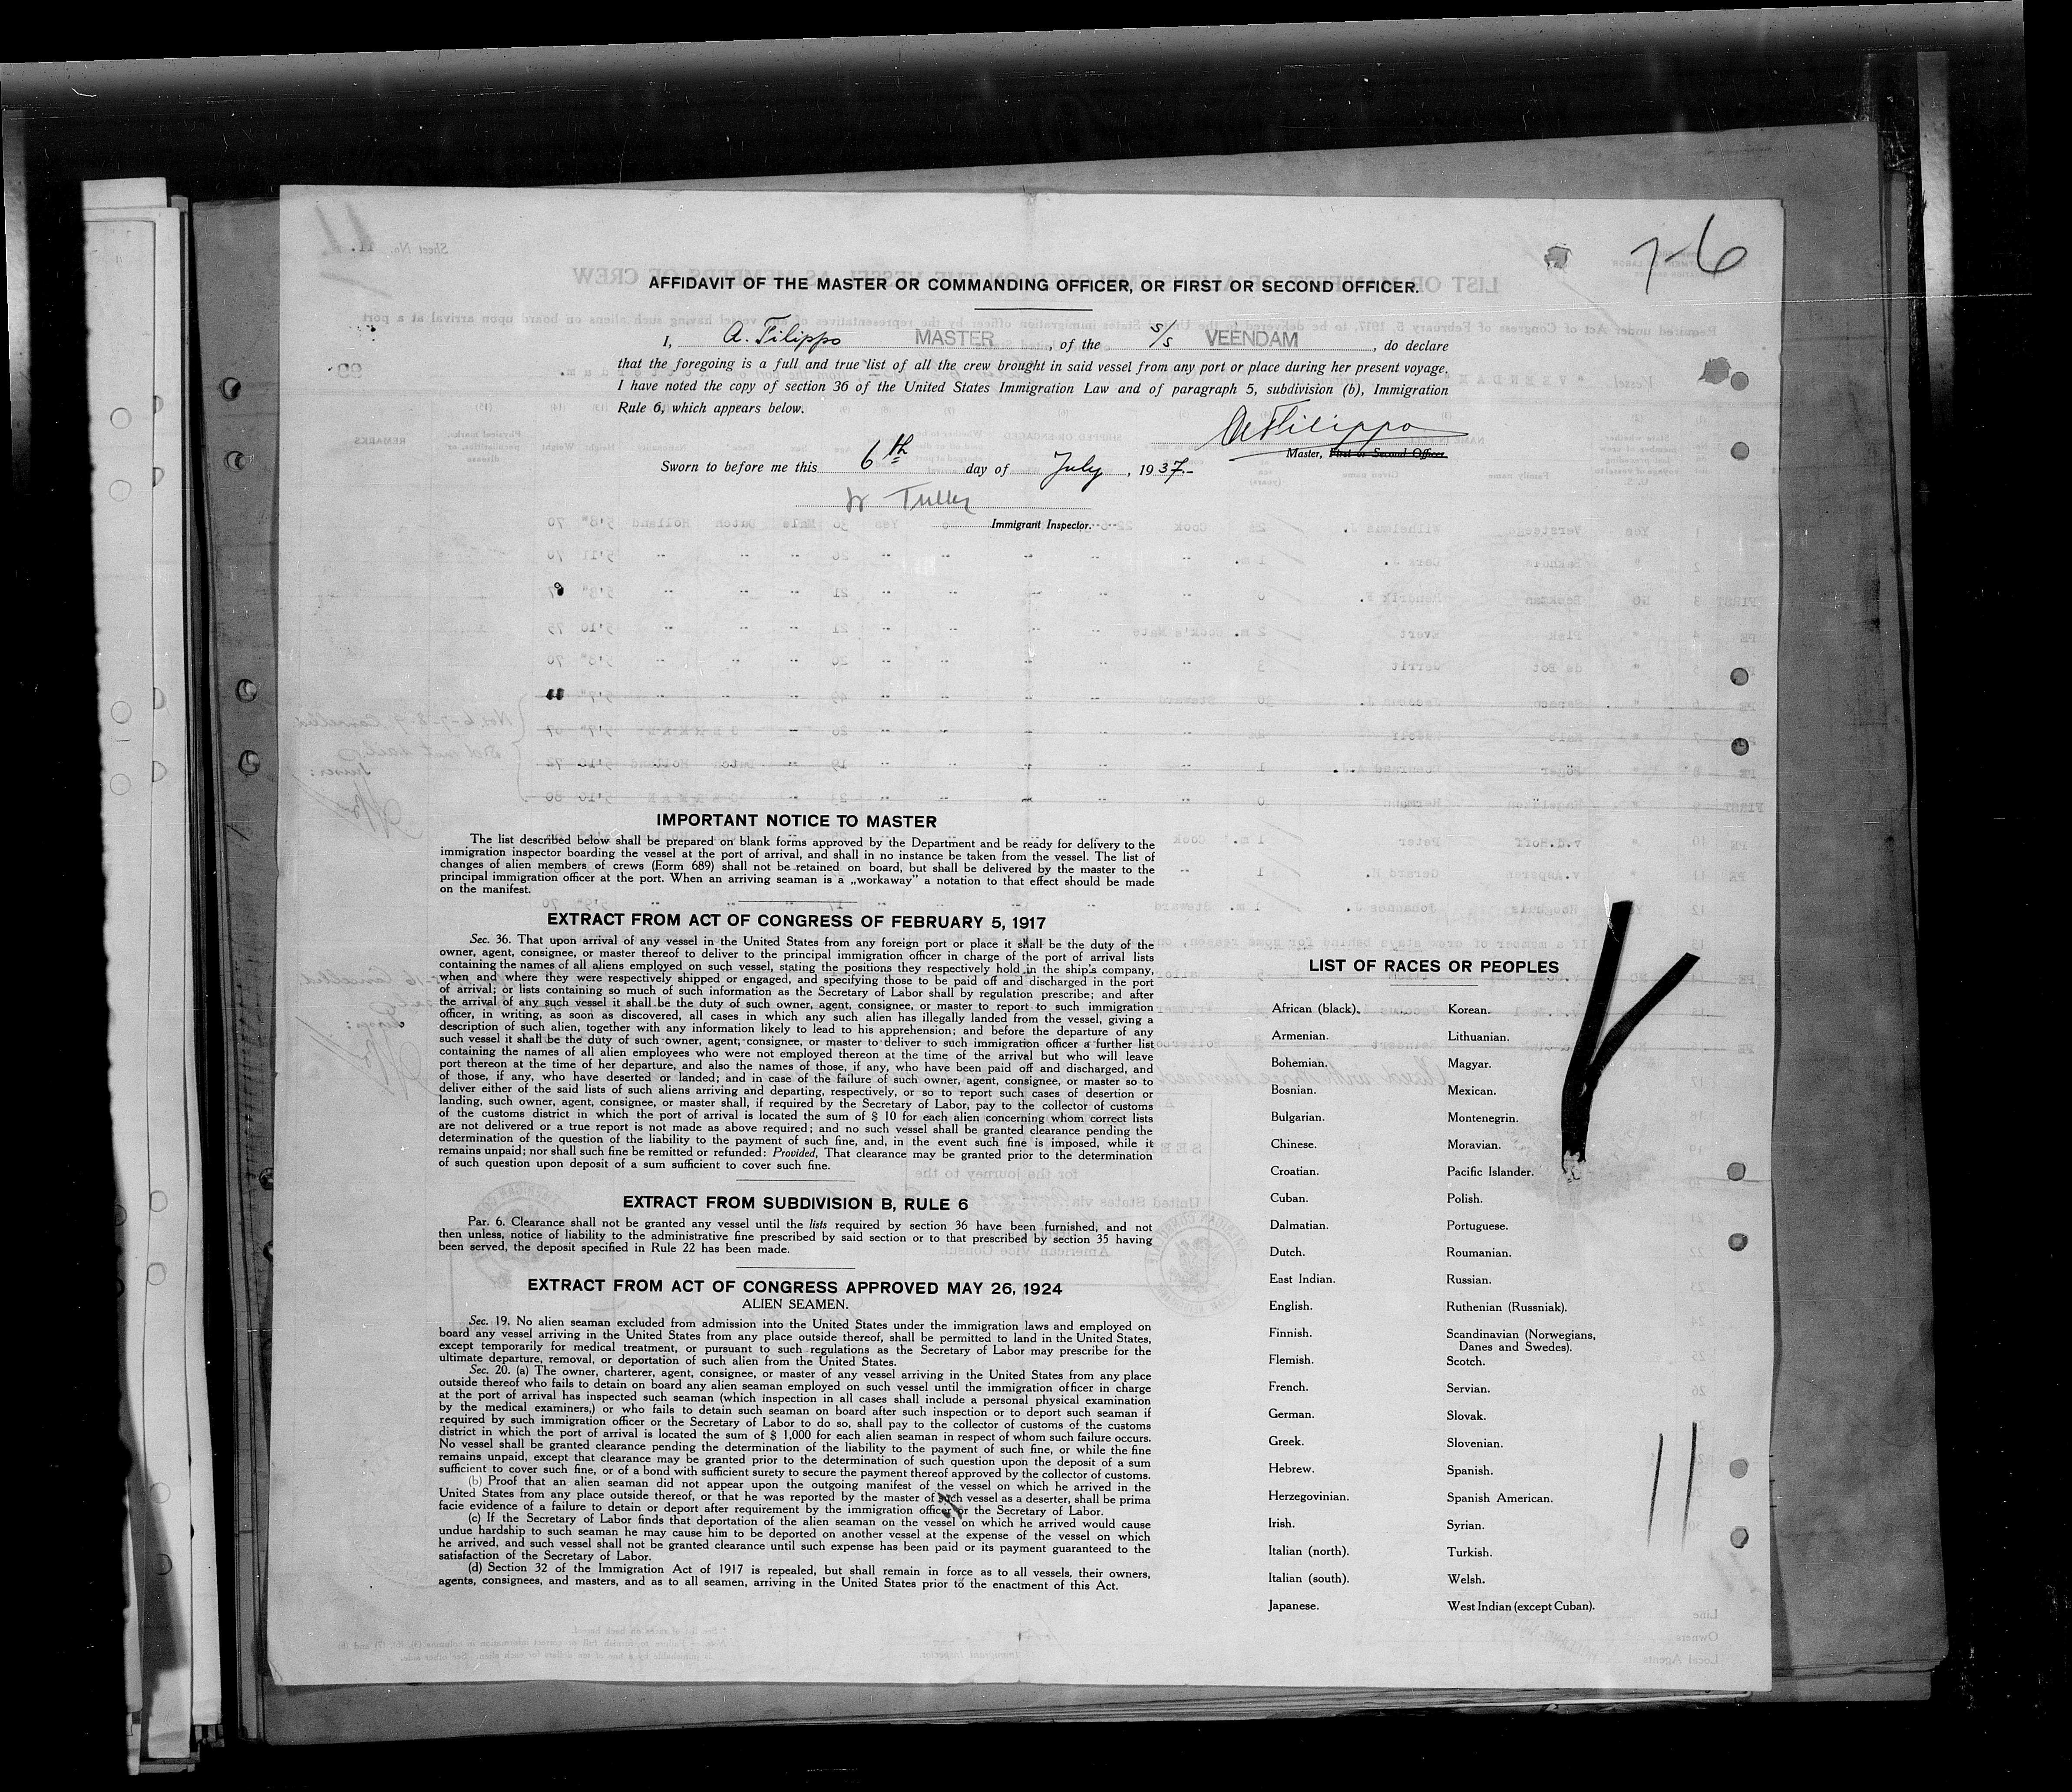 7-6
AFFIDAVIT OF THE MASTER OR COMMANDING OFFICER, OR FIRST OR SECOND OFFICER.
I, A. Filippo MASTER, of the s/s VEENDAM, do declare
that the foregoing is a full and true list of all the crew brought in said vessel from any port or place during her present voyage.
I have noted the copy of section 36 of the United States Immigration Law and of paragraph 5, subdivision (b), Immigration
Rule 6, which appears below.
A Filippo
Master, First or Second Officer.
Sworn to before me this 6th day of July, 1937.-
Immigrant Inspector.
IMPORTANT NOTICE TO MASTER
The list described below shall be prepared on blank forms approved by the Department and be ready for delivery to the
immigration inspector boarding the vessel at the port of arrival, and shall in no instance be taken from the vessel. The list of
changes of alien members of crews (Form 689) shall not be retained on board, but shall be delivered by the master to the
principal immigration officer at the port. When an arriving seaman is a „workaway" a notation to that effect should be made
on the manifest.
EXTRACT FROM ACT OF CONGRESS OF FEBRUARY 5, 1917
Sec. 36. That upon arrival of any vessel in the United States from any foreign port or place it shall be the duty of the
owner, agent, consignee, or master thereof to deliver to the principal immigration officer in charge of the port of arrival lists
containing the names of all aliens employed on such vessel, stating the positions they respectively hold in the ship's company,
when and where they were respectively shipped or engaged, and specifying those to be paid off and discharged in the port
of arrival; or lists containing so much of such information as the Secretary of Labor shall by regulation prescribe; and after
the arrival of any such vessel it shall be the duty of such owner, agent, consignee, or master to report to such immigration
officer, in writing, as soon as discovered, all cases in which any such alien has illegally landed from the vessel, giving a
description of such alien, together with any information likely to lead to his apprehension; and before the departure of any
such vessel it shall be the duty of such owner, agent, consignee, or master to deliver to such immigration officer a further list
containing the names of all alien employees who were not employed thereon at the time of the arrival but who will leave
port thereon at the time of her departure, and also the names of those, if any, who have been paid off and discharged, and
of those, if any, who have deserted or landed; and in case of the failure of such owner, agent, consignee, or master so to
deliver either of the said lists of such aliens arriving and departing, respectively, or so to report such cases of desertion or
landing, such owner, agent, consignee, or master shall, if required by the Secretary of Labor, pay to the collector of customs
of the customs district in which the port of arrival is located the sum of $ 10 for each alien concerning whom correct lists
are not delivered or a true report is not made as above required; and no such vessel shall be granted clearance pending the
determination of the question of the liability to the payment of such fine, and, in the event such fine is imposed, while it
remains unpaid; nor shall such fine be remitted or refunded: Provided, That clearance may be granted prior to the determination
of such question upon deposit of a sum sufficient to cover such fine.
EXTRACT FROM SUBDIVISION B, RULE 6
Par. 6. Clearance shall not be granted any vessel until the lists required by section 36 have been furnished, and not
then unless, notice of liability to the administrative fine prescribed by said section or to that prescribed by section 35 having
been served, the deposit specified in Rule 22 has been made.
EXTRACT FROM ACT OF CONGRESS APPROVED MAY 26, 1924
ALIEN SEAMEN.
Sec. 19. No alien seaman excluded from admission into the United States under the immigration laws and employed on
board any vessel arriving in the United States from any place outside thereof, shall be permitted to land in the United States,
except temporarily for medical treatment, or pursuant to such regulations as the Secretary of Labor may prescribe for the
ultimate departure, removal, or deportation of such alien from the United States.
Sec. 20. (a) The owner, charterer, agent, consignee, or master of any vessel arriving in the United States from any place
outside thereof who fails to detain on board any alien seaman employed on such vessel until the immigration officer in charge
at the port of arrival has inspected such seaman (which inspection in all cases shall include a personal physical examination
by the medical examiners,) or who fails to detain such seaman on board after such inspection or to deport such seaman if
required by such immigration officer or the Secretary of Labor to do so, shall pay to the collector of customs of the customs
district in which the port of arrival is located the sum of $ 1,000 for each alien seaman in respect of whom such failure occurs.
No vessel shall be granted clearance pending the determination of the liability to the payment of such fine, or while the fine
remains unpaid, except that clearance may be granted prior to the determination of such question upon the deposit of a sum
sufficient to cover such fine, or of a bond with sufficient surety to secure the payment thereof approved by the collector of customs.
(b) Proof that an alien seaman did not appear upon the outgoing manifest of the vessel on which he arrived in the
United States from any place outside thereof, or that he was reported by the master of such vessel as a deserter, shall be prima
facie evidence of a failure to detain or deport after requirement by the immigration officer or the Secretary of Labor.
(c) If the Secretary of Labor finds that deportation of the alien seaman on the vessel on which he arrived would cause
undue hardship to such seaman he may cause him to be deported on another vessel at the expense of the vessel on which
he arrived, and such vessel shall not be granted clearance until such expense has been paid or its payment guaranteed to the
satisfaction of the Secretary of Labor.
(d) Section 32 of the Immigration Act of 1917 is repealed, but shall remain in force as to all vessels, their owners,
agents, consignees, and masters, and as to all seamen, arriving in the United States prior to the enactment of this Act.
LIST OF RACES OR PEOPLES
African (black).
Armenian.
Bohemian.
Bosnian.
Bulgarian.
Chinese.
Croatian.
Cuban.
Dalmatian.
Dutch.
East Indian.
English.
Finnish.
Flemish.
French.
German.
Greek.
Hebrew.
Herzegovinian.
Irish.
Italian (north).
Italian (south).
Japanese.
Korean.
Lithuanian.
Magyar.
Mexican.
Montenegrin.
Moravian.
Pacific Islander.
Polish.
Portuguese.
Roumanian.
Russian.
Ruthenian (Russniak).
Scandinavian (Norwegians,
Danes and Swedes).
Scotch.
Servian.
Slovak.
Slovenian.
Spanish.
Spanish American.
Syrian.
Turkish.
Welsh.
West Indian (except Cuban).
11